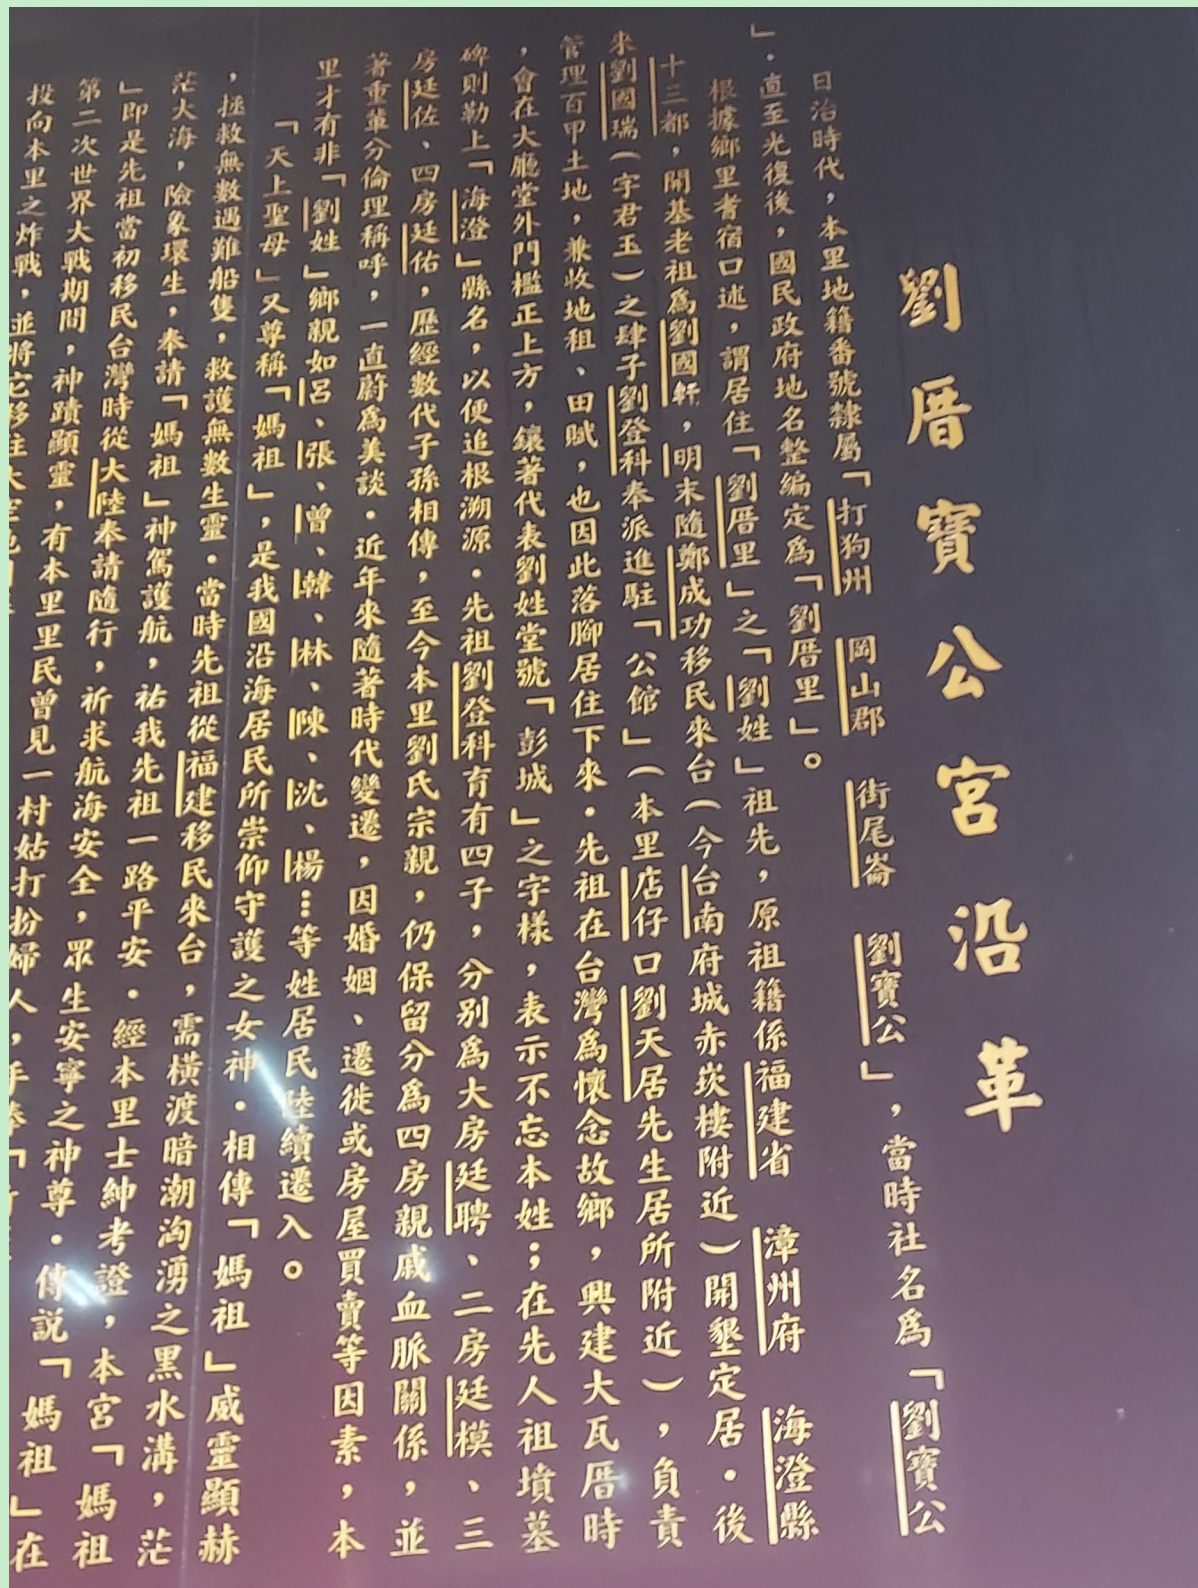 劉厝寶公宮沿革
日治時代，本里地籍番號隸屬「打狗州　岡山郡　街尾崙　劉寶公」，當時社名為「劉寶公
」．直至光復後，國民政府地名整編定為「劉厝里」。
根據鄉里耆宿口述，謂居住「劉厝里」之「劉姓」祖先，原祖籍係福建省　漳州府　海澄縣
十三都，開基老祖為劉國軒，明末隨鄭成功移民來台（今台南府城赤崁樓附近）開墾定居．後
來劉國瑞（字君玉）之肆子劉登科奉派進駐「公館」（本里店仔口劉天居先生居所附近），負責
管理百甲土地，兼收地租、田賦，也因此落腳居住下來．先祖在台灣為懷念故鄉，興建大瓦厝時
，會在大廳堂外門檻正上方，鑲著代表劉姓堂號「彭城」之字樣，表示不忘本姓；在先人祖墳墓
碑則勒上「海澄」縣名，以便追根溯源．先祖劉登科育有四子，分別為大房廷聘、二房廷模、三
房廷佐、四房廷佑，歷經數代子孫相傳，至今本里劉氏宗親，仍保留分為四房親戚血脈關係，並
著重輩分倫理稱呼，一直蔚為美談．近年來隨著時代變遷，因婚姻、遷徙或房屋買賣等因素，本
里才有非「劉姓」鄉親如呂、張、曾、韓、林、陳、沈、楊…等姓居民陸續遷入。
「天上聖母」又尊稱「媽祖」，是我國沿海居民所崇仰守護之女神．相傳「媽祖」威靈顯赫
，拯救無數遇難船隻，救護無數生靈．當時先祖從福建移民來台，需橫渡暗潮洶湧之黑水溝，茫
茫大海，險象環生，奉請「媽祖」神駕護航，祐我先祖一路平安．經本里士紳考證，本宮「媽祖
」即是先祖當初移民台灣時從大陸奉請隨行，祈求航海安全，眾生安寧之神尊．傳説「媽祖」在
第二次世界大戰期間，神蹟顯靈，有本里里民曾見一村姑打扮婦人，手
投向本里之炸戰，並將它移往大